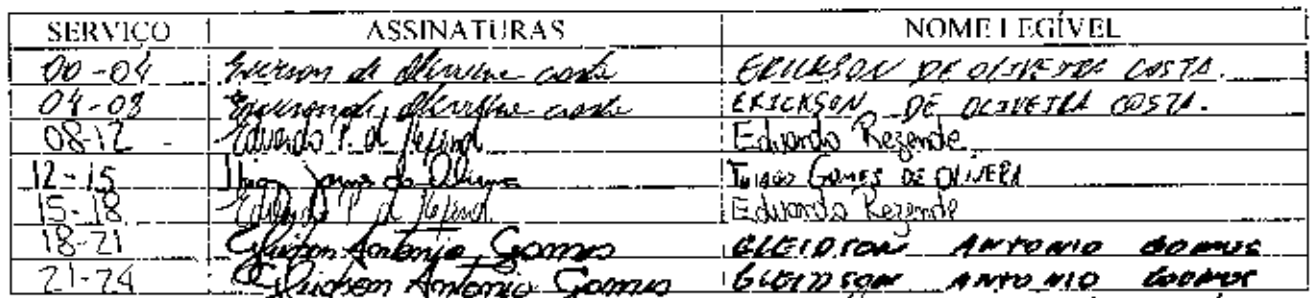 SERVIÇO ASSINATURAS NOME LEGÍVEL
00-04 Erickson de Oliveira Costa ERICKSON DE OLIVEIRA COSTA.
04-08 Erickson de Oliveira Costa ERICKSON DE OLIVEIRA COSTA.
08-12 Eduardo P. de Rezende Eduardo Rezende
12-15 Thiago Gomes de Oliveira THIAGO GOMES DE OLIVEIRA
15-18 Eduardo P. de Rezende Eduardo Rezende
18-21 Gleidson Antonio Gomes GLEIDSON ANTONIO GOMES
21-24 Gleidson Antonio Gomes GLEIDSON ANTONIO GOMES